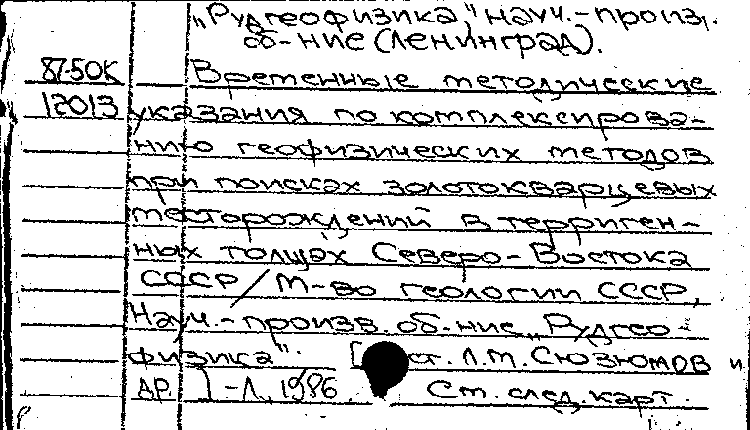 „Рудгеофизика", науч.-произв.
об-ние (Ленинград).
87-50К Временные методические
12013 указания по комплексирова-
нию геофизических методов
при поисках золотокварцевых
месторождений в терриген-
ных толщах Северо-Востока
СССР / М-во геологии СССР,
Науч.-произв. об-ние „Рудгео-
физика". [ ст. Л.М. Сюзюмов и
др.] -Л., 1986. См. след. карт.